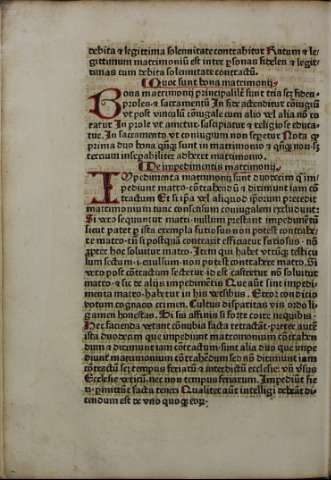 debita ⁊ legittima solennitate contrahitur Ratum ⁊ le⸗
gittimum matrimoniū est inter ꝑsonas fideles ⁊ legit⸗
timas cum debita solennitate contractū.
Quot sunt bona matrimonij
Bona matrimonij principalit sunt tria scꝫ fidem
proles ⁊ sacramentū In fide attenditur ꝯiugiū
vt post vinculū ꝯiugale cum alio vel alia nō co
eatur In prole vt ametur. suscipiatur ⁊ religiose educa⸗
tur. In sacramento vt coniugium non sepetur Nota ꝙ
prima duo bona qn̄qꝫ sunt in matrimonio ⁊ qn̄qꝫ non sꝫ
tercium insepabiliter adheret matrimonio.
De impedimentis matrimonij.
Impedimenta matrimonij sunt duodecim q̄ im⸗
pediunt matro. cōtrahendū ⁊ dirimunt iam cō
tractum Et si ip̄a vel aliquod ipsorum precedit
matrimonium tunc omnium coniugalem excludunt:
Si vero sequuntur matro. nullum prestant impedimētū
licut patet ꝑ ista exempla furiosus non potest contrahe⸗
re matro. tn̄ si postquā contraxit efficiatur furiosus. nō
ꝓpter hoc soluitur matro. Item qui habet vtrūqꝫ testicu
lum sectum. ⁊ euulsum. non potest contrahere matro. Si
vero post cōtractum secetur id est castretur nō soluitur
matro. ⁊ sic de alijs impedimētis Que aūt sint impedi⸗
menta matro. habetur in hijs versibus. Error condicio
votum cognatio crimen. Cultus disparitas vis ordo li⸗
gamen honestas. Si sis affinis si forte coire nequibis.
Hec facienda vetant cōnubia facta retractāt. preter aūtē
ista duodecim que impediunt matrimonium cōtrahen
dum ⁊ dirimunt iam cōtractum. sunt alia duo que impe
diunt matrimonium cōtrahēdum sed nō dirimunt iam
cōtractū scꝫ tempus feriatū ⁊ interdictū ecclesie. vn̄ vsus
Ecclesie vetitū. nec non tempus feriarum. Impediūt fie
ri. ꝑmittūt facta teneri Qualiter aūt intelligi debeāt di⸗
cendum est de vno quoqꝫ eoꝝ.